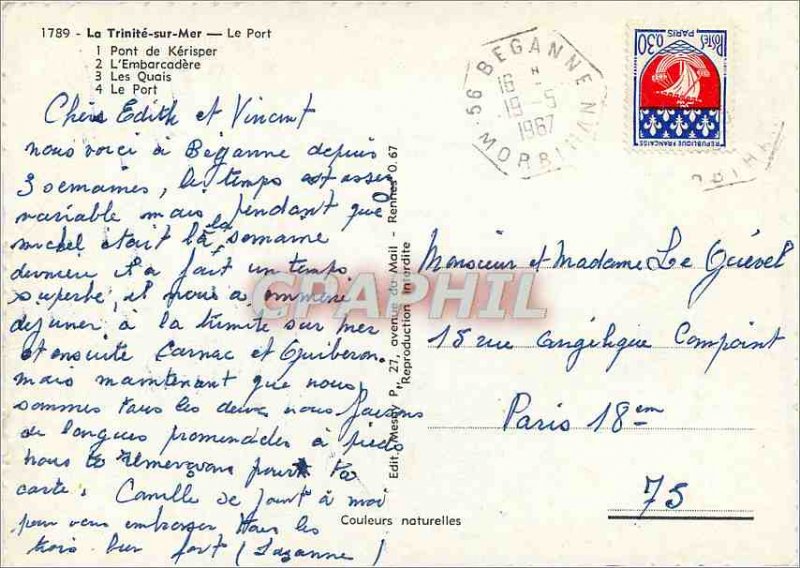 1789 - La Trinité-sur-Mer — Le Port
1 Pont de Kérisper
2 L'Embarcadère
3 Les Quais
4 Le Port
Chers Edith et Vincent
nous voici à Béganne depuis
3 semaines, le temps est assez
variable mais pendant que
michel était là la semaine
dernière il a fait un temps
superbe, il nous a emmené
dejeuner à la trinité sur mer
et ensuite Carnac et Quiberon.
mais maintenant que nous
sommes tous les deux nous faisons
de longues promenades à pieds
nous te remercions pour ta
carte. Camille se joint à moi
pour vous embrasser tous les
trois bien fort (Suzanne)
Edit. "Mesny P", 27, avenue du Mail - Rennes O. 67
Reproduction interdite
Couleurs naturelles
BEGANNE
16 H
19-5
1967
56 MORBIHAN
POSTES PARIS
0,30
REPUBLIQUE FRANÇAISE
Monsieur et Madame Le Guével
15 rue Angélique Compoint
Paris 18em
75
CPAPHIL